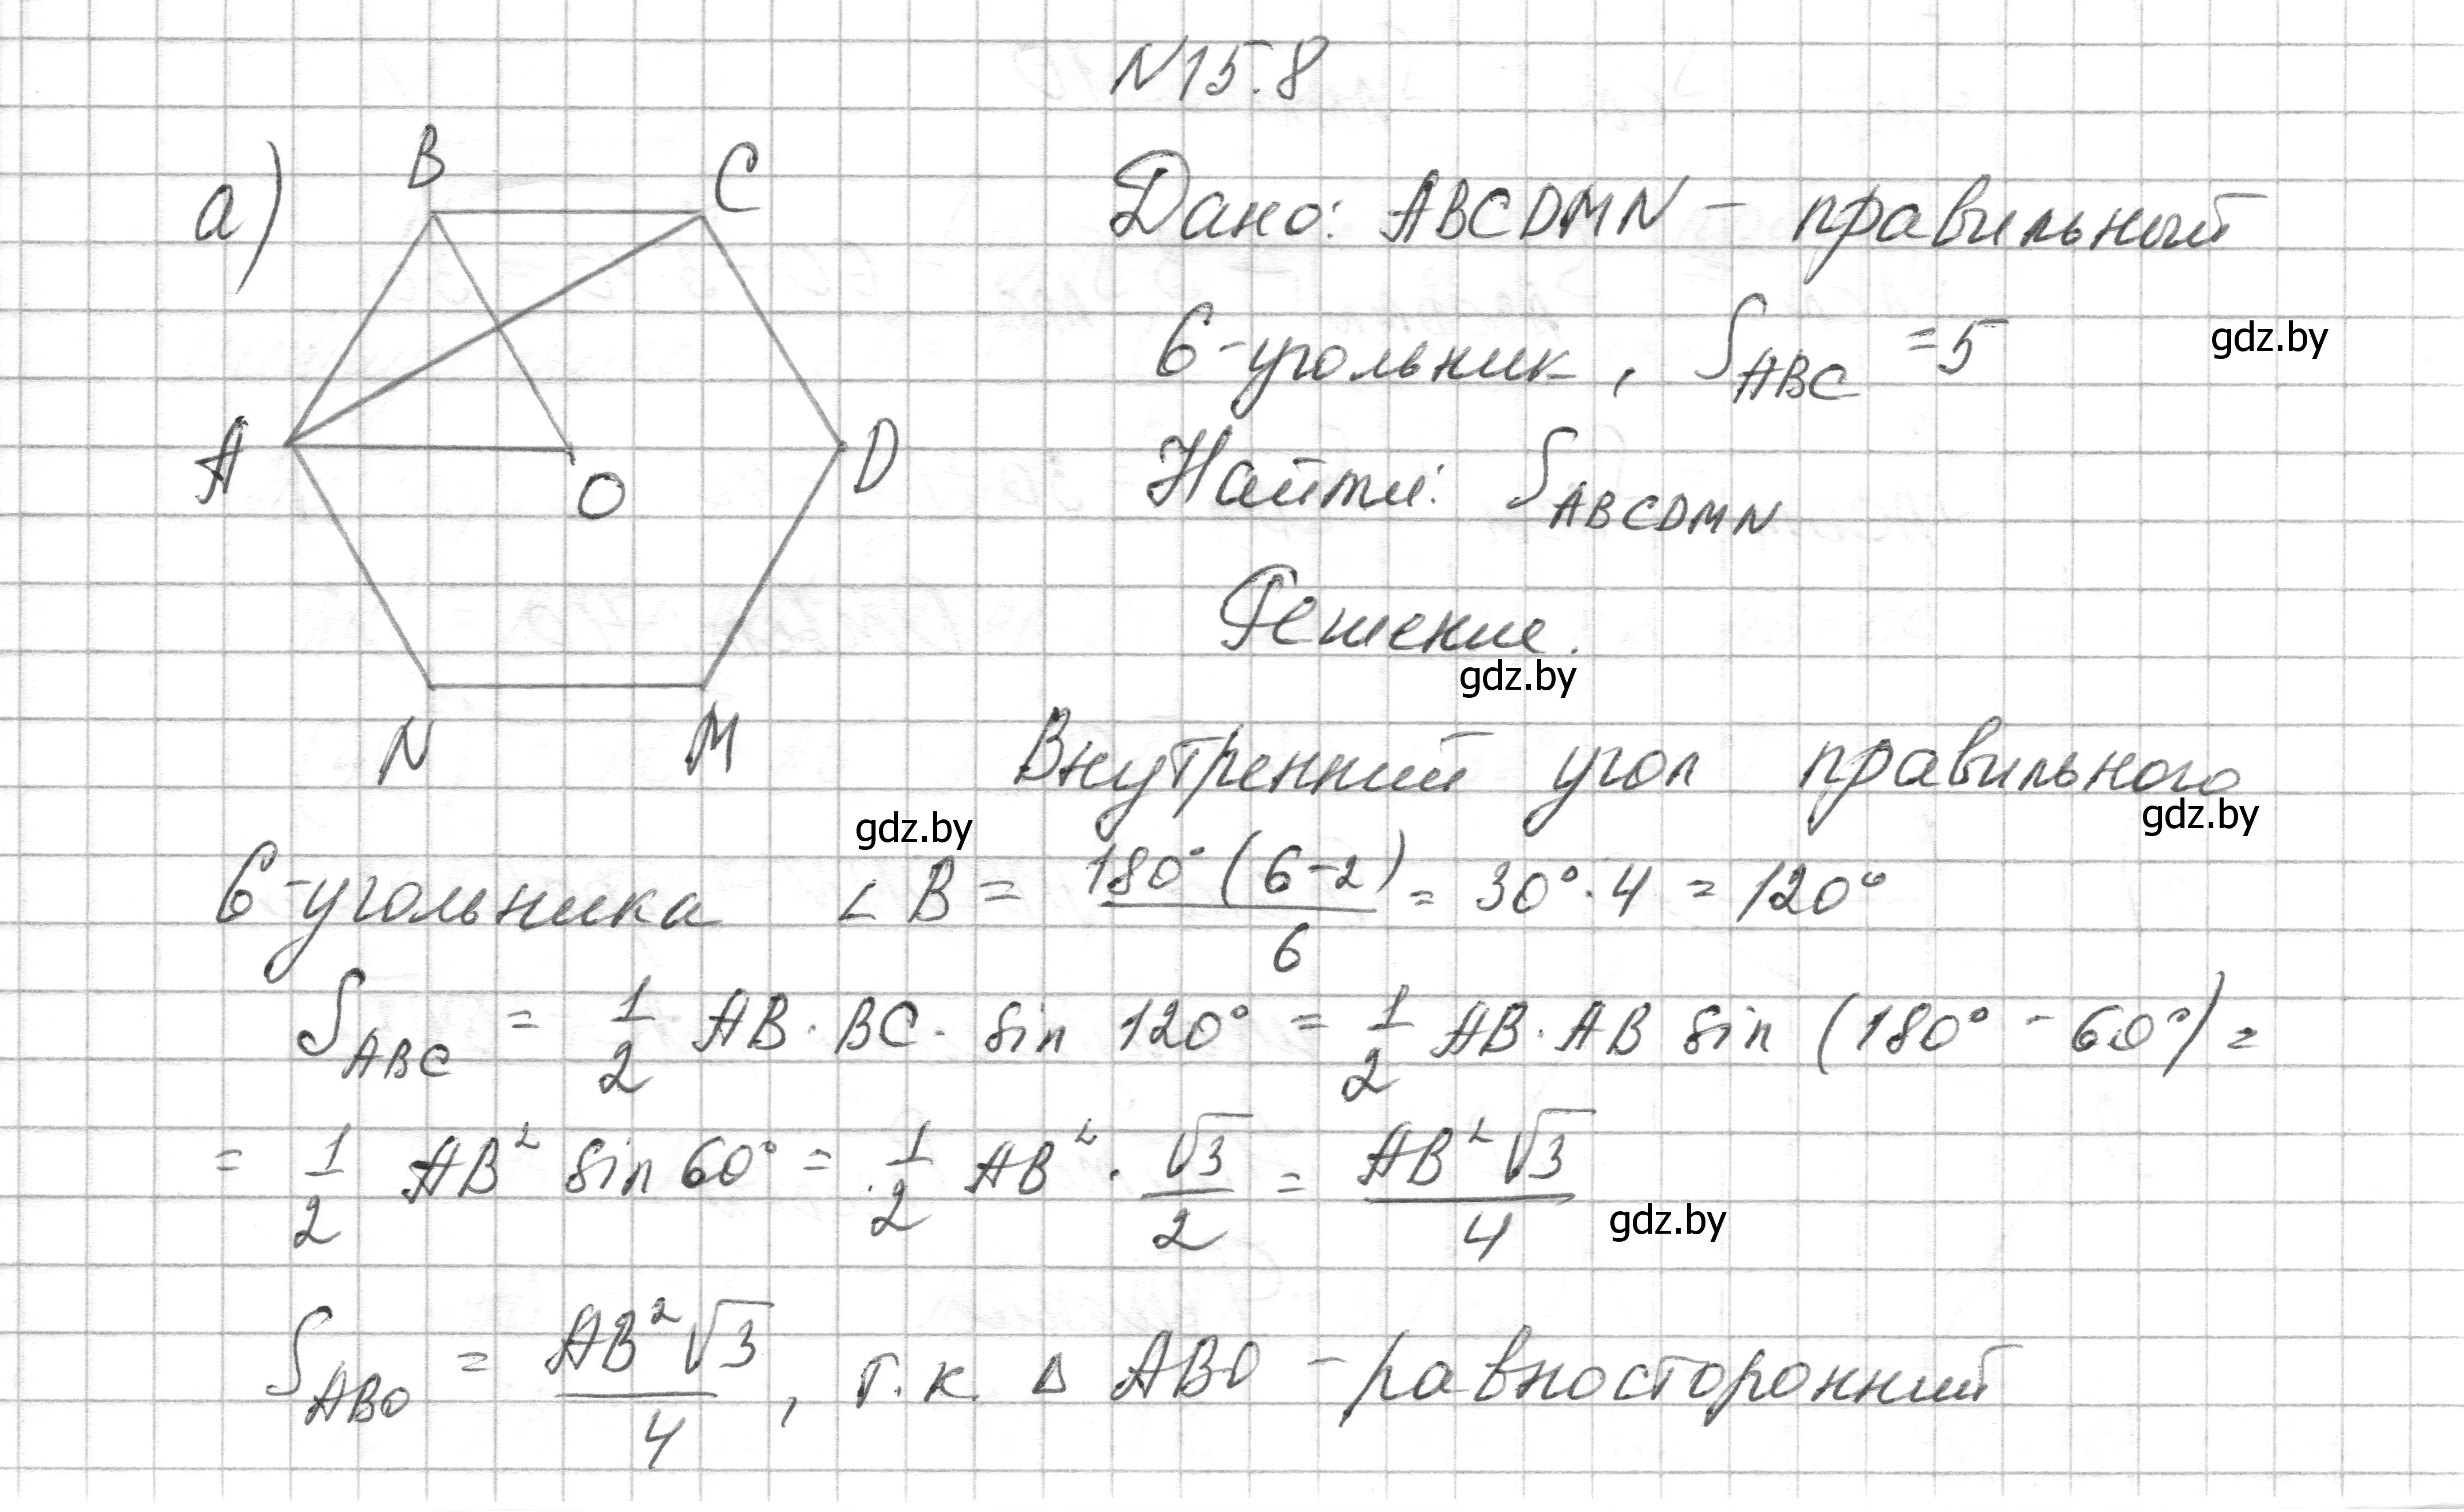 N15.8
а)
B C
Дано: ABCDMN – правильный
6-угольник, S_ABC = 5
gdz.by
A O D
Найти: S_ABCDMN
Решение.
gdz.by
N M
Внутренний угол правильного
gdz.by
gdz.by
6-угольника ∠B = 180°(6-2)/6 = 30°·4 = 120°
S_ABC = 1/2 AB·BC·sin 120° = 1/2 AB·AB sin (180° - 60°) =
= 1/2 AB² sin 60° = 1/2 AB² · √3/2 = AB²√3/4
gdz.by
S_ABO = AB²√3/4, т.к. Δ ABO – равносторонний